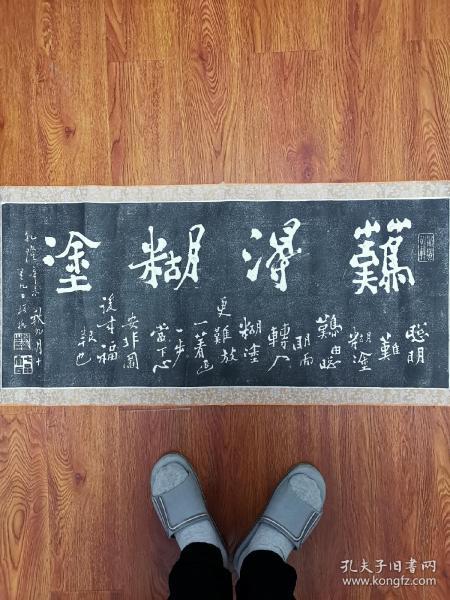 難得糊塗
聰明
難
糊塗
難由聰
明而
轉入
糊塗
更難放
一着退
一步
當下心
安非圖
後來福
報也
乾隆辛未秋九月十
有九日板橋
孔夫子旧书网
www.kongfz.com